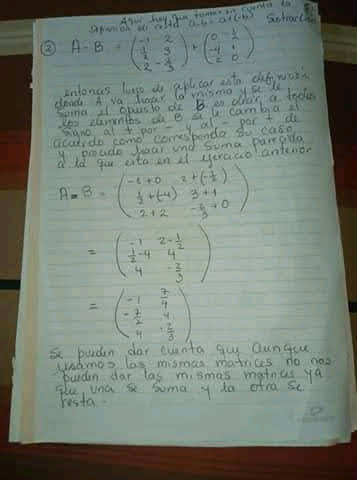 Aqui hay que tomar en cuenta la
definicion de resta a-b= a+(-b)
② A-B = ( -1 2 ) + ( 0 -1/2 )
( 1/2 3 ) ( -4 1 )
( 2 -2/3 ) ( 2 0 )
entonces luego de aplicar esta definicion
donde A va hacer la misma y se le
suma el opuesto de B es decir a todos
los elementos de B se le cambia el
signo al + por - y al - por + de
acuerdo como corresponda su caso
y procedo hacer una suma parecida
a la que esta en el ejercicio anterior
A-B = ( -1+0 2+(-1/2) )
( 1/2+(-4) 3+1 )
( 2+2 -2/3+0 )
= ( -1 2-1/2 )
( 1/2-4 4 )
( 4 -2/3 )
= ( -1 7/4 )
( -7/2 4 )
( 4 -2/3 )
Se pueden dar cuenta que aunque
usamos las mismas matrices no nos
pueden dar las mismas matrices ya
que una se suma y la otra se
resta.